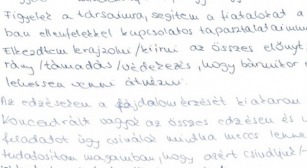 Figyelek a társaimra, segítem a fiatalokat a
ban ellenfelekkel kapcsolatos tapasztalataimm
Elkezdtem krajzolni/kiírni az összes előnyt
rány/támadás/védekezés, hogy bármikor e
lehessen venni
Az edzéseken a fájdalomérzést kitartom
Koncentrált vagyok az összes edzésen és u
feladatot úgy csinálok mintha meccs lenne
tudatosítom magamban, hogy azért csináljuk/